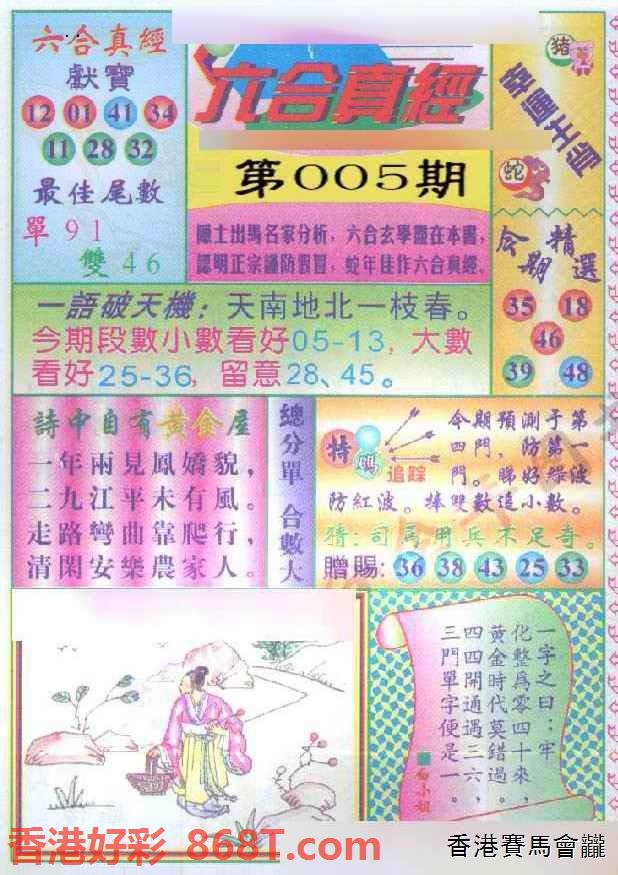 六合真經
獻寶
12 01 41 34
11 28 32
最佳尾數
單 91
雙 46
六合真經
第005期
隱士出馬名家分析，六合玄學盡在本書，
認明正宗謹防假冒，蛇年佳作六合真經。
豬
蛇
今期精選
35 18
46
39 48
一語破天機：天南地北一枝春。
今期段數小數看好05-13，大數
看好25-36，留意28、45。
詩中自有黃金屋
一年兩見鳳嬌貌，
二九江平未有風。
走路彎曲靠爬行，
清閑安樂農家人。
總分單 合數大
特碼
追踪
今期預測于第
四門，防第一
門。睇好綠波
防紅波。捧雙數追小數。
猜：司馬用兵不足奇。
贈賜：36 38 43 25 33
一字之曰：牢
化整為零四十來，
黃金時代莫錯過。
四四開通遇三六，
三門單字便是一。
白小姐
香港好彩 868T.com
香港賽馬會